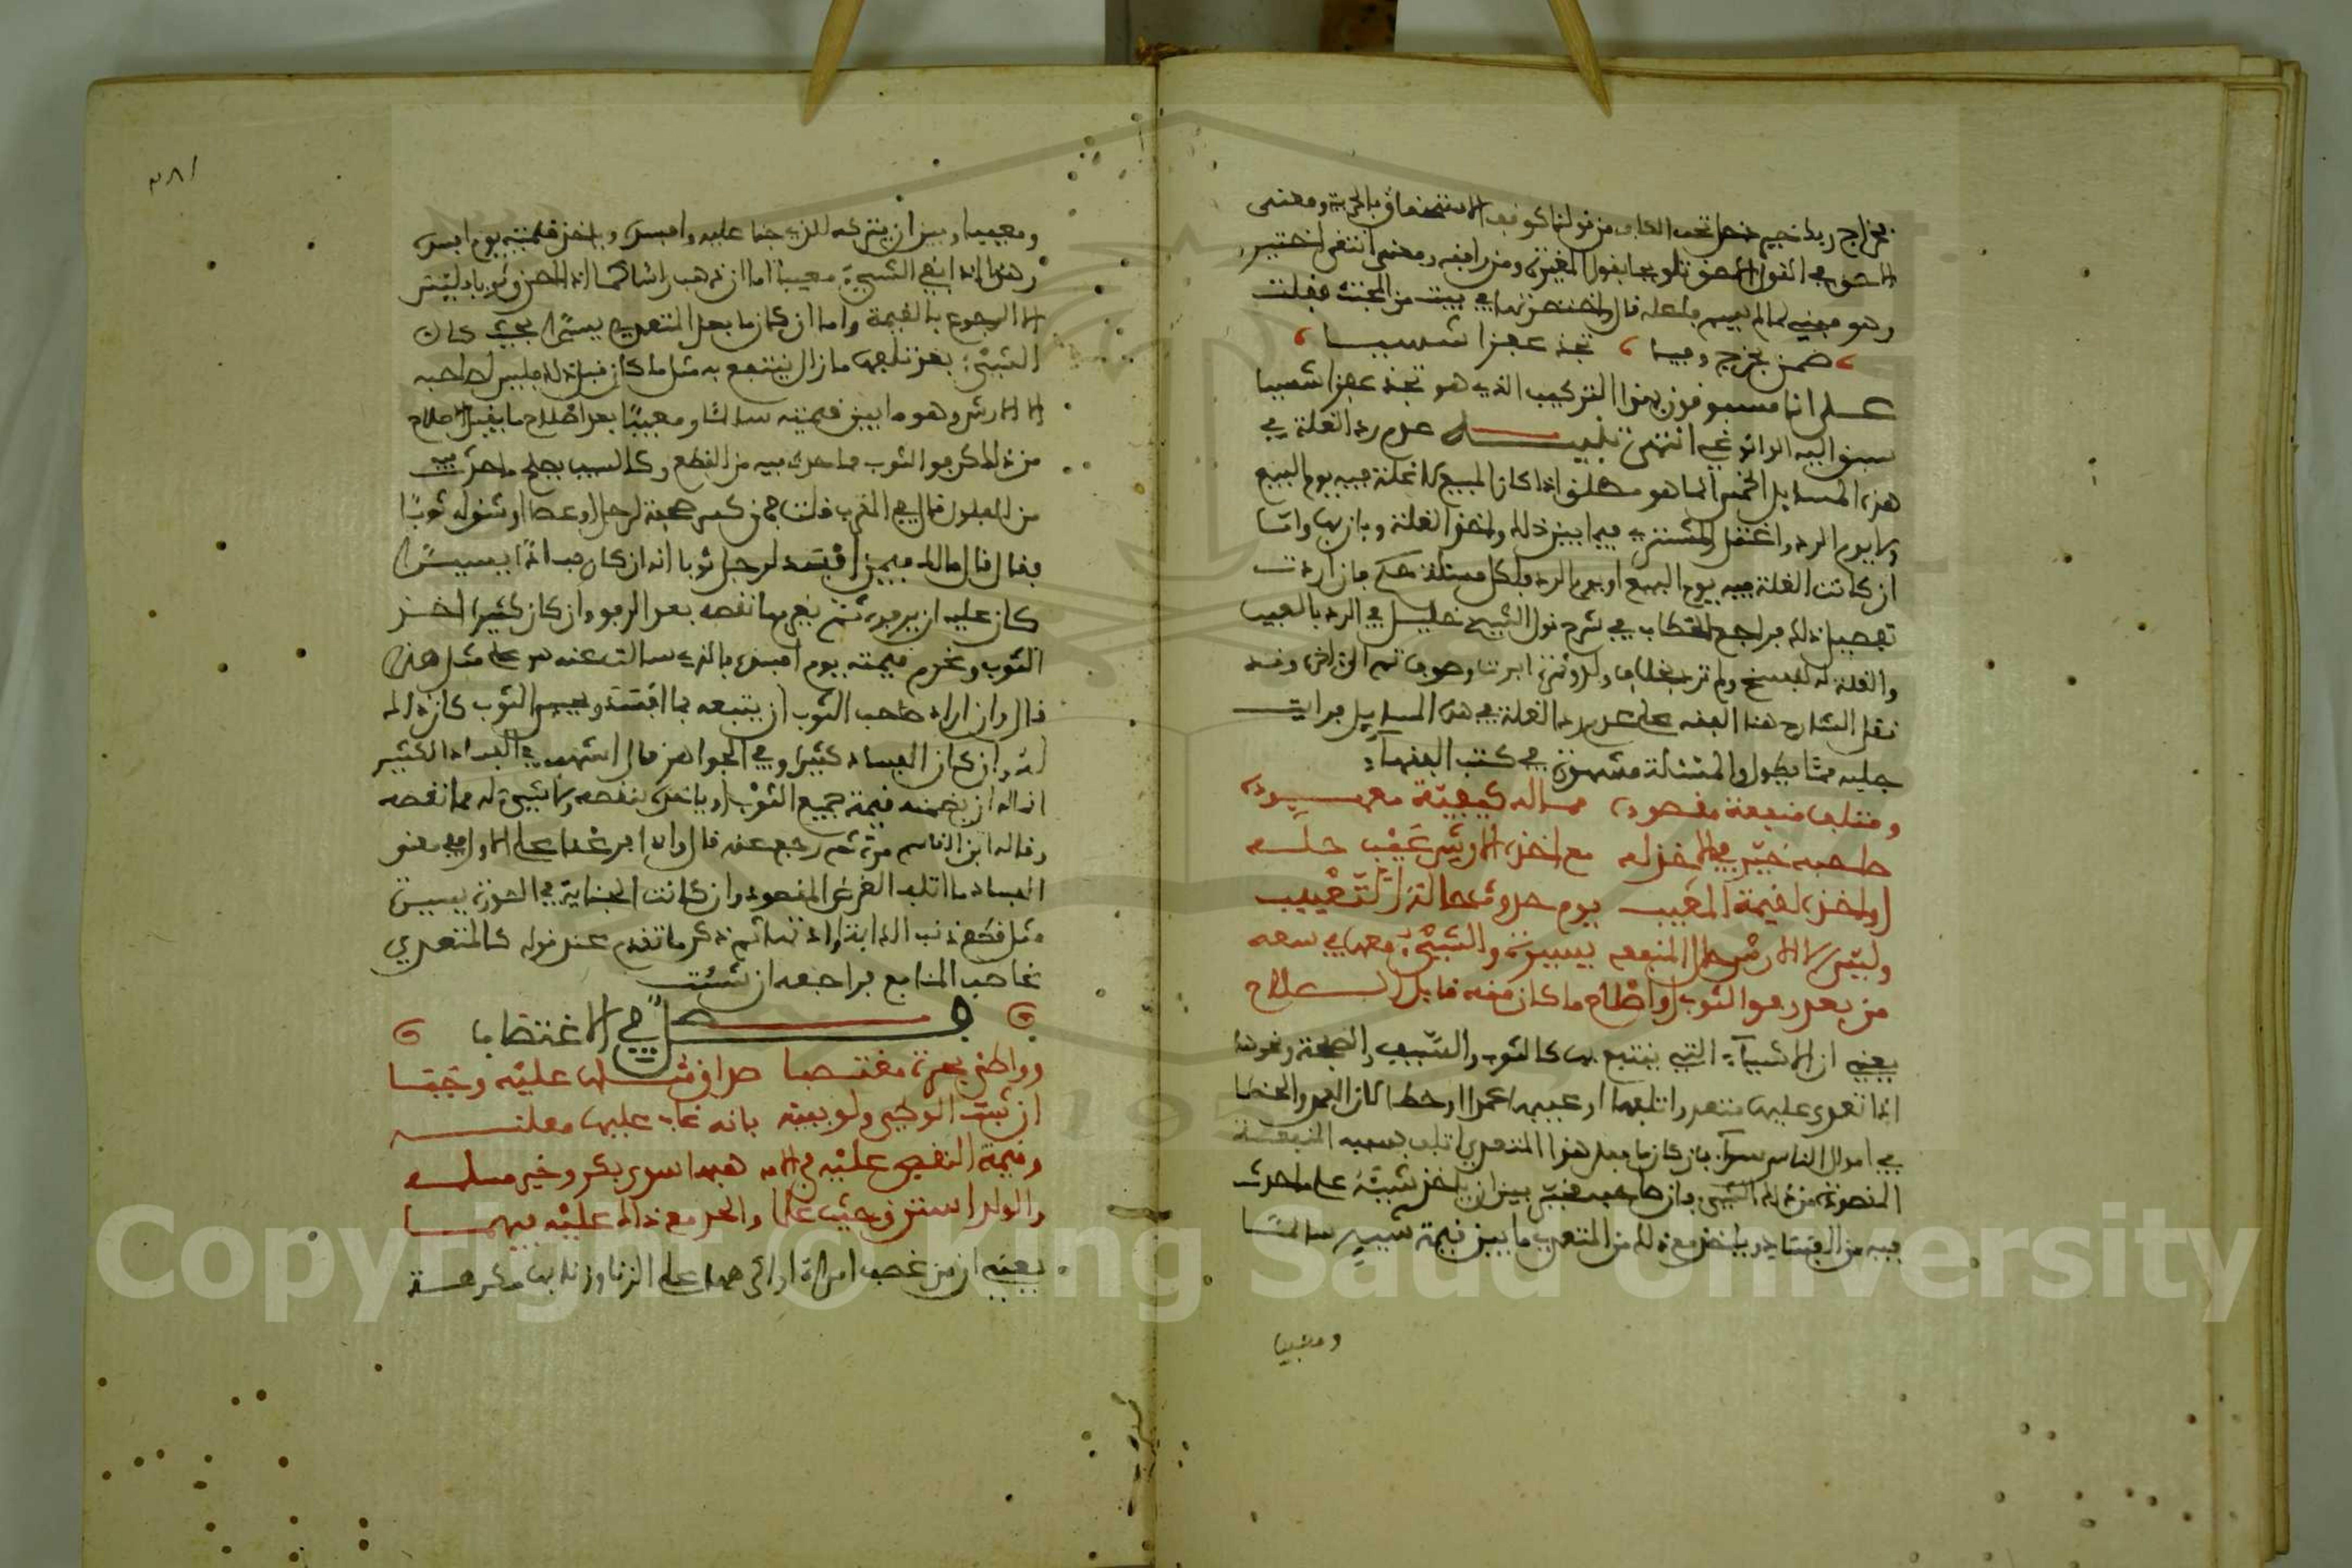 على انا مسبوقون بهذا التركيب الذي هو تجذ عفزا شسيا
سبق اليه الوانوغي انتهى تنبيه عدم رد الغلة في
هذه المسايل الخمس انما هو مطلق اذا كان المبيع لا غلة فيه يوم البيع
ولا يوم الرد واغتل المشتري فيما بين ذلك واخذ الغلة وبان بها واما
ان كانت الغلة فيه يوم البيع او يوم الرد فلكل مسئلة حكم فان اردت
تفصيل ذلك فراجع الحطاب في شرح قول الشيخ خليل في الرد بالعيب
والغلة له للفسخ ولم ترد بخلاف ولد وثمرة ابرت وصوف تم الخ وقد
نقل الشارح هنا الفقه على عدم رد الغلة في هذه المسايل
جلبه مما يطول والمسئلة مشهورة في كتب الفقهاء
ومتلف منفعة مقصوده مما له كيفية معهوده
صاحبه خير في الاخذ له مع اخذه لارش عيب حله
او اخذه لقيمة المعيب يوم حدوث حالة التعييب
وليس الا الارش حال المنفعه يسيرة والشيء معها في سعه
من بعد رفو الثوب او اصلاح ما كان منه قابل الصلاح
يعني ان الاشياء التي ينتفع بها كالثوب والسيف والصحفة ونحوها
اذا تعدى عليها متعد واتلفها او عيبها عمدا او خطا اذ العمد والخطا
في اموال الناس سواء فان كان ما فعل هذا المتعدي اتلف بسببه المنفعة
المقصودة من ذلك الشيء فان صاحبه مخير بين ان ياخذ شيئه على ما حدث
فيه من الفساد وياخذ مع ذلك من المتعدي ما بين قيمة شيئه سالما
ومعيبا
٣٨١
ومعيبا وبين ان يتركه للذي جنا عليه وافسد وياخذ قيمته يوم افسد
وهذا اذا بقي الشيء معيبا اما ان ذهب راسا كما اذا احرق ثوبا فليس
الا الرجوع بالقيمة واما ان كان ما فعل المتعدي يسيرا بحيث كان
الشيء بعد تلافيه ما زال ينتفع به مثل ما كان قبل ذلك فليس لصاحبه
الا الارش وهو ما بين قيمته سالما ومعيبا بعد اصلاح ما يقبل الاصلاح
من ذلك كرفو الثوب مما حدث فيه من القطع وكالسيف يصلح ما حدث فيه
من الفلول قال في المقرب قلت فمن كسر صحفة لرجل او عصا او شق له ثوبا
فقال قال مالك فيمن افسد لرجل ثوبا انه ان كان فسادا يسيرا
كان عليه ان يرفوه ثم يغرم ما نقصه بعد الرفو وان كان كثيرا اخذ
الثوب وغرم قيمته يوم افسده فالذي سالت عنه هو على مثل هذا
قال وان اراد صاحب الثوب ان يتبعه بما افسد ويحبس الثوب كان ذلك
له وان كان الفساد كثيرا وفي الجواهر قال اشهب في الفساد الكثير
انما له ان يضمنه قيمة جميع الثوب او ياخذه بنقصه ولا شيء له مما نقصه
وقاله ابن القاسم مرة ثم رجع عنه قال وان ابى غدا على الاول وفي معنى
الفساد ما اتلف الغرض المقصود وان كانت الجناية في الصورة يسيرة
مثل قطع ذنب الدابة او اذنها ثم ذكر ما تقدم عند قوله كالمتعدي
غاصب المنافع فراجعه ان شئت
فصل في الاغتصاب
وواطئ بحرة مغتصبا صداق مثلها عليه وجبا
ان ثبت الوطء ولو ببينه بانه غاب عليها معلنه
وقيمة النقص عليه في الامه هبها سوى بكر وغير مسلمه
والولد استرق حيث علما والحد مع ذاك عليه فيهما
يعني ان من غصب امراة او اكرهها على الزنا وزنا بها مكرهة